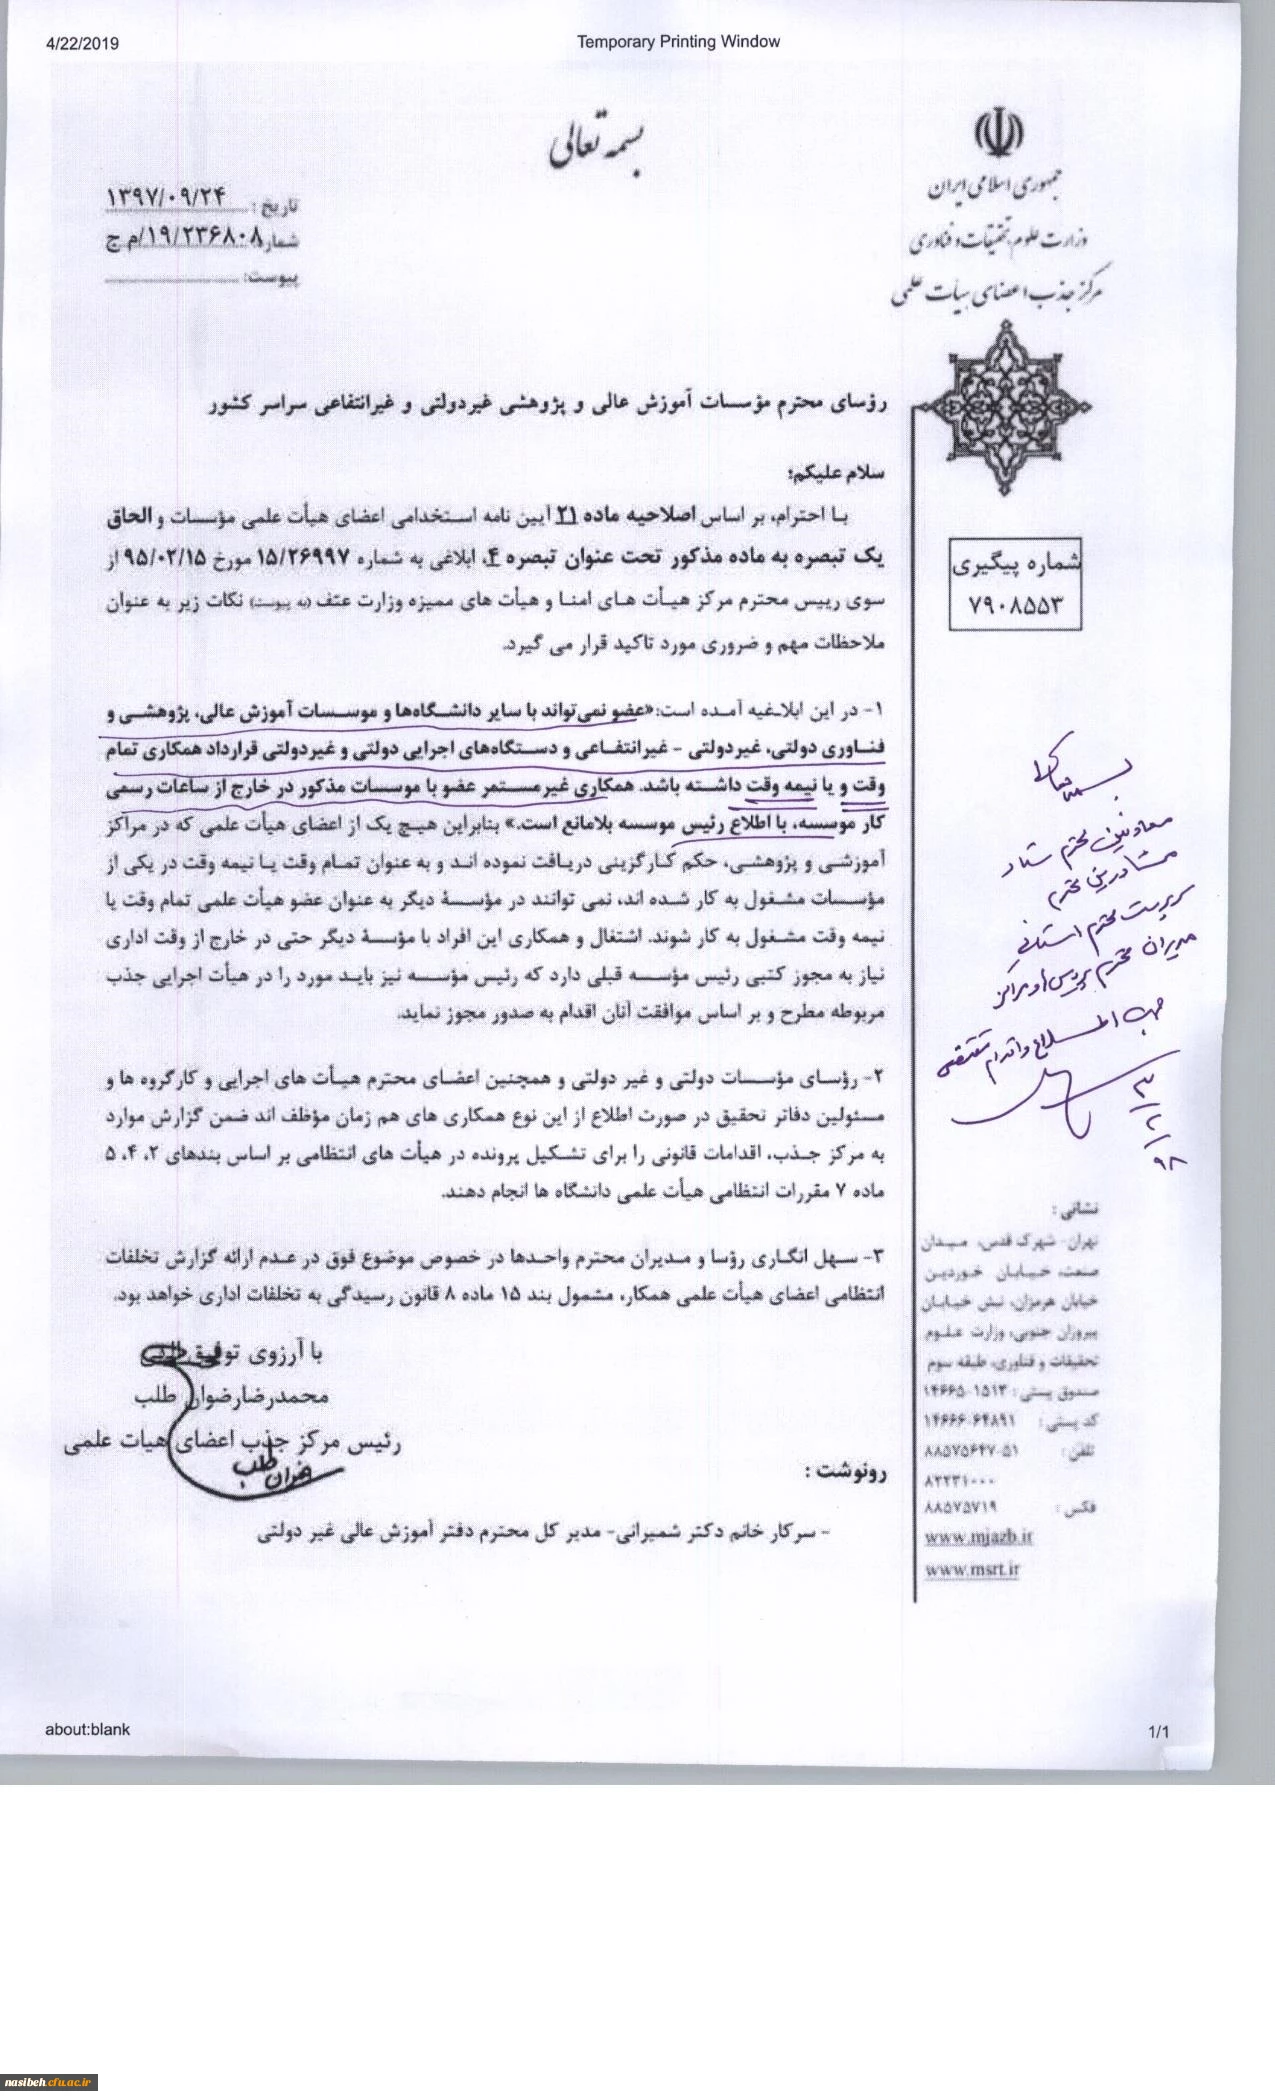 4/22/2019
Temporary Printing Window
بسمه تعالی
جمهوری اسلامی ایران
وزارت علوم، تحقیقات و فناوری
مرکز جذب اعضای هیأت علمی
تاریخ : ۱۳۹۷/۰۹/۲۴
شماره ۱۹/۲۳۶۸۰۸/م ج
پیوست:
رؤسای محترم مؤسسات آموزش عالی و پژوهشی غیردولتی و غیرانتفاعی سراسر کشور
سلام علیکم؛
با احترام، بر اساس اصلاحیه ماده ۲۱ آیین نامه استخدامی اعضای هیأت علمی مؤسسات و الحاق
یک تبصره به ماده مذکور تحت عنوان تبصره ۴، ابلاغی به شماره ۱۵/۲۶۹۹۷ مورخ ۹۵/۰۲/۱۵ از
سوی رییس محترم مرکز هیأت های امنا و هیأت های ممیزه وزارت عتف (به پیوست) نکات زیر به عنوان
ملاحظات مهم و ضروری مورد تاکید قرار می گیرد.
۱- در این ابلاغیه آمده است:«عضو نمی‌تواند با سایر دانشگاه‌ها و موسسات آموزش عالی، پژوهشی و
فناوری دولتی، غیردولتی - غیرانتفاعی و دستگاه‌های اجرایی دولتی و غیردولتی قرارداد همکاری تمام
وقت و یا نیمه وقت داشته باشد. همکاری غیرمستمر عضو با موسسات مذکور در خارج از ساعات رسمی
کار موسسه، با اطلاع رئیس موسسه بلامانع است.» بنابراین هیچ یک از اعضای هیأت علمی که در مراکز
آموزشی و پژوهشی، حکم کارگزینی دریافت نموده اند و به عنوان تمام وقت یا نیمه وقت در یکی از
مؤسسات مشغول به کار شده اند، نمی توانند در مؤسسهٔ دیگر به عنوان عضو هیأت علمی تمام وقت یا
نیمه وقت مشغول به کار شوند. اشتغال و همکاری این افراد با مؤسسهٔ دیگر حتی در خارج از وقت اداری
نیاز به مجوز کتبی رئیس مؤسسه قبلی دارد که رئیس مؤسسه نیز باید مورد را در هیأت اجرایی جذب
مربوطه مطرح و بر اساس موافقت آنان اقدام به صدور مجوز نماید.
۲- رؤسای مؤسسات دولتی و غیر دولتی و همچنین اعضای محترم هیأت های اجرایی و کارگروه ها و
مسئولین دفاتر تحقیق در صورت اطلاع از این نوع همکاری های هم زمان مؤظف اند ضمن گزارش موارد
به مرکز جذب، اقدامات قانونی را برای تشکیل پرونده در هیأت های انتظامی بر اساس بندهای ۲، ۴، ۵
ماده ۷ مقررات انتظامی هیأت علمی دانشگاه ها انجام دهند.
۳- سهل انگاری رؤسا و مدیران محترم واحدها در خصوص موضوع فوق در عدم ارائه گزارش تخلفات
انتظامی اعضای هیأت علمی همکار، مشمول بند ۱۵ ماده ۸ قانون رسیدگی به تخلفات اداری خواهد بود.
با آرزوی توفیق الهی
محمدرضارضوان طلب
رئیس مرکز جذب اعضای هیات علمی
رونوشت :
- سرکار خانم دکتر شمیرانی- مدیر کل محترم دفتر آموزش عالی غیر دولتی
شماره پیگیری
۷۹۰۸۵۵۳
معاونین محترم ستاد
مشاورین محترم
سرپرست محترم استانی
مدیران محترم پردیس ها و مراکز
جهت اطلاع و اقدام مقتضی
۹۸/۲/۳
نشانی :
تهران- شهرک قدس، میدان
صنعت، خیابان خوردین
خیابان هرمزان، نبش خیابان
پیروزان جنوبی، وزارت علوم
تحقیقات و فناوری، طبقه سوم
صندوق پستی : ۱۵۱۳-۱۴۶۶۵
کد پستی : ۱۴۶۶۶-۶۴۸۹۱
تلفن : ۸۸۵۷۵۶۴۷-۵۱
۸۲۲۳۱۰۰۰
فکس : ۸۸۵۷۵۷۱۹
www.mjazb.ir
www.msrt.ir
about:blank
1/1
nasibeh.cfu.ac.ir